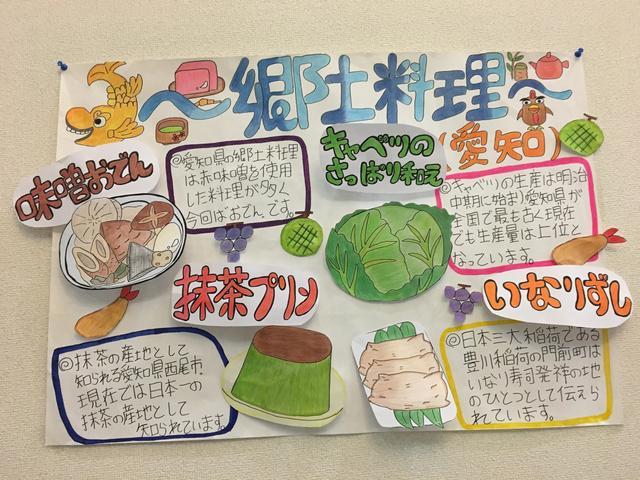 〜郷土料理〜
(愛知)
味噌おでん
◎愛知県の郷土料理
は赤味噌を使用
した料理が多く
今回はおでんです。
キャベツの
さっぱり和え
◎キャベツの生産は明治
中期に始まり愛知県が
全国で最も古く現在
でも生産量は上位と
なっています。
抹茶プリン
◎抹茶の産地として
知られる愛知県西尾市
現在では日本一の
抹茶の産地として
知られています。
いなりずし
◎日本三大稲荷である
豊川稲荷の門前町は
いなり寿司発祥の地
のひとつとして伝えら
れています。